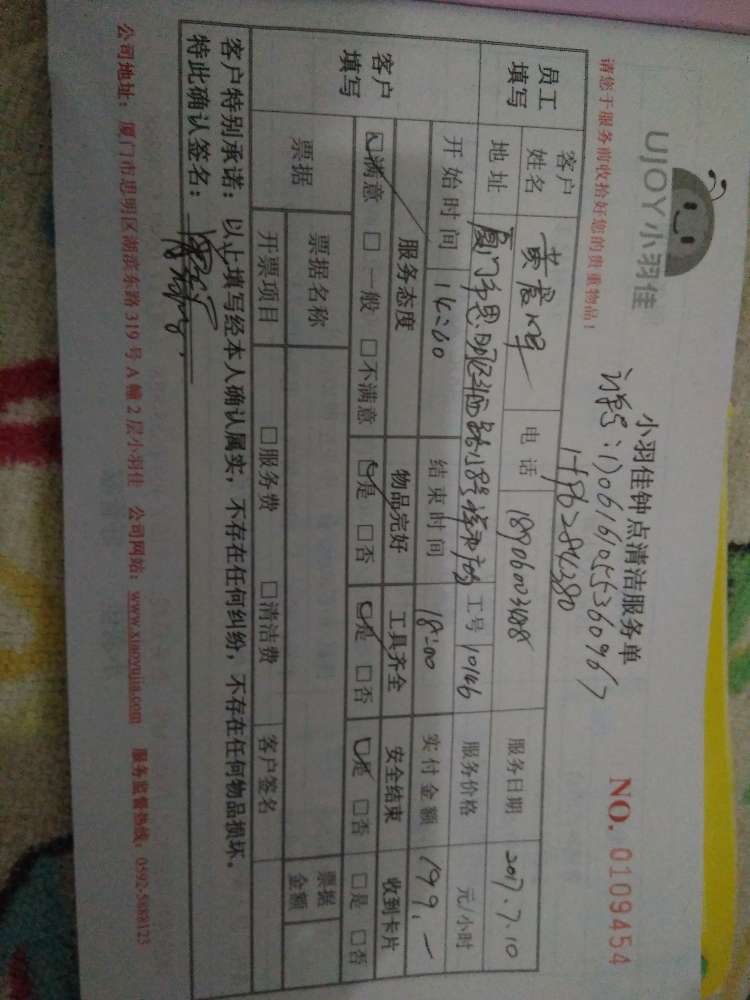 UJOY小羽佳
小羽佳钟点清洁服务单
NO. 0109454
请您于服务前收拾好您的贵重物品！
员工填写
客户姓名 电话 服务日期 2017.7.10
地址 工号 10146 服务价格 元/小时
开始时间 14:00 结束时间 18:00 实付金额 199.—
客户填写
服务态度 物品完好 工具齐全 安全结束 收到卡片
☑满意 □一般 □不满意 ☑是 □否 ☑是 □否 ☑是 □否 □是 □否
票据 票据名称 票据金额
开票项目 □服务费 □清洁费 客户签名
客户特别承诺：以上填写经本人确认属实，不存在任何纠纷，不存在任何物品损坏。
特此确认签名：
公司地址：厦门市思明区湖滨东路 319 号 A 幢 2 层小羽佳 公司网站：www.xiaoyujia.com 服务监督热线：0592-5888123